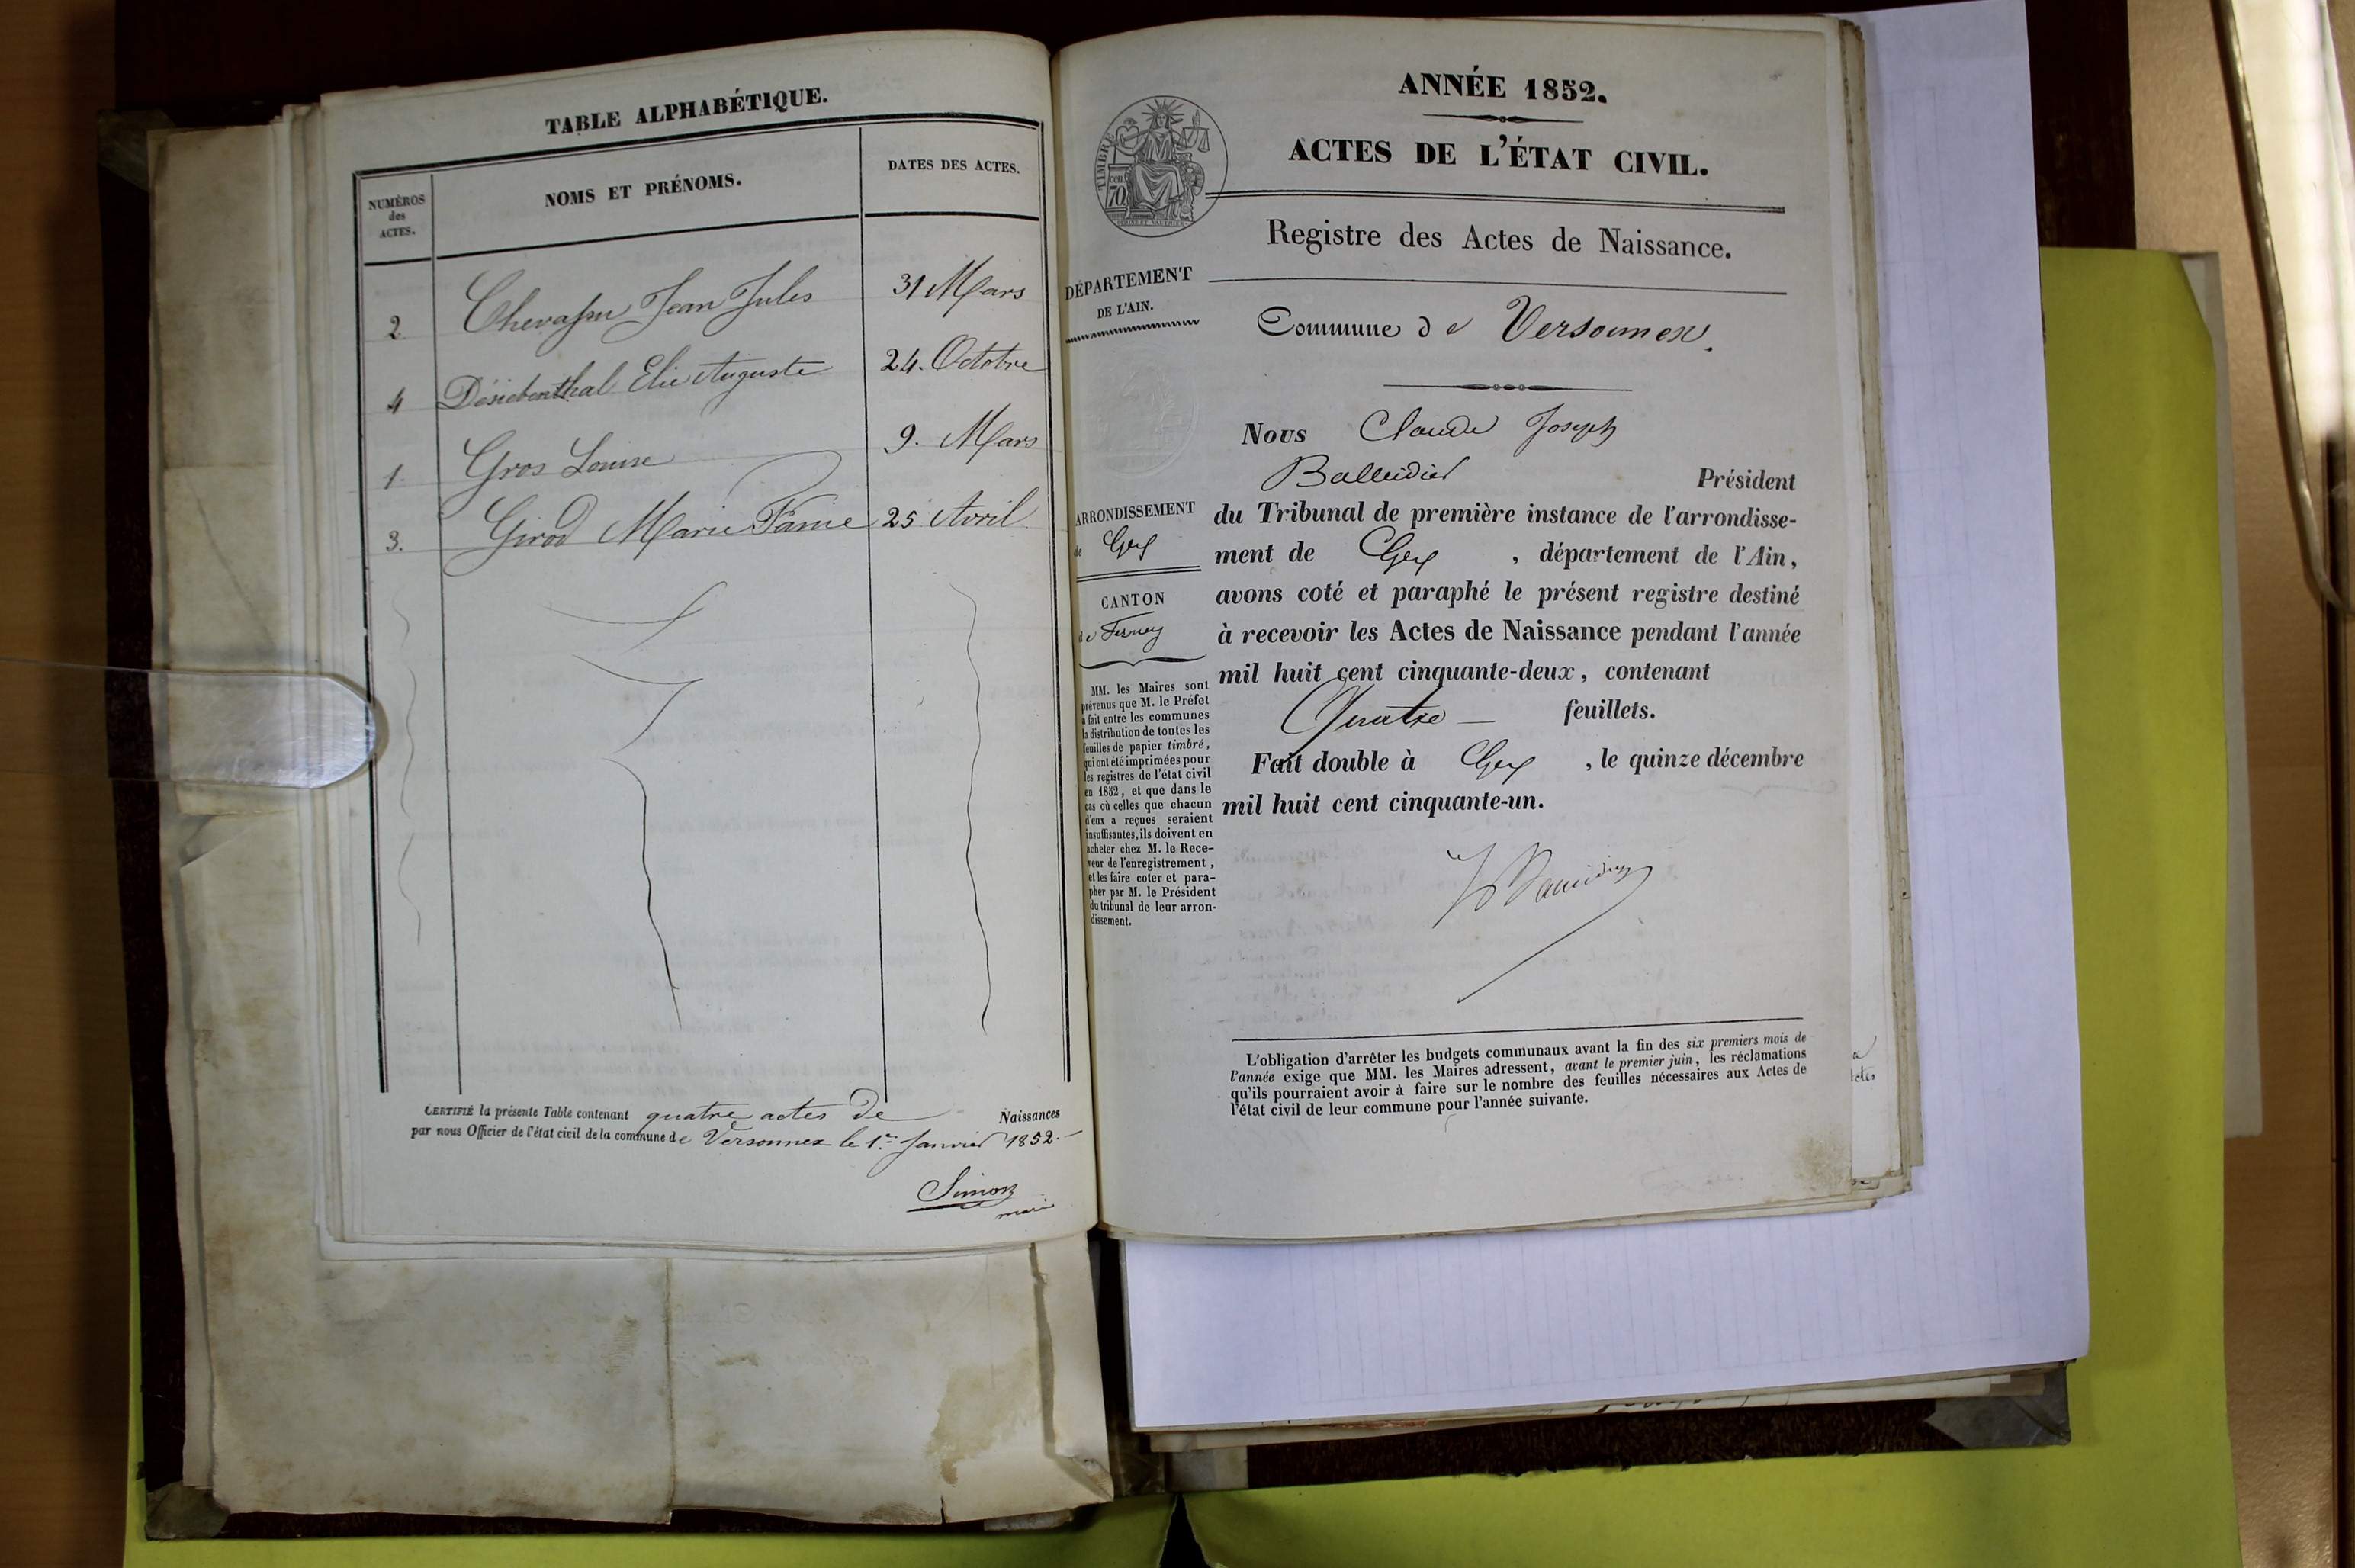 TABLE ALPHABÉTIQUE.
NUMÉROS
des
ACTES.
NOMS ET PRÉNOMS.
DATES DES ACTES.
2 Chevassu Jean Jules 31 Mars
4 Désiebenthal Elie Auguste 24. Octobre
1. Gros Louise 9. Mars
3. Girod Marie Fanie 25 Avril
CERTIFIÉ la présente Table contenant quatre actes de Naissances
par nous Officier de l'état civil de la commune de Versonnex le 1er Janvier 1852.
Simon
maire
ANNÉE 1852.
ACTES DE L'ÉTAT CIVIL.
TIMBRE
70
Registre des Actes de Naissance.
DÉPARTEMENT
DE L'AIN.
Commune de Versonnex.
Nous Claude Joseph
Balleidier Président
du Tribunal de première instance de l'arrondisse-
ment de Gex, département de l'Ain,
avons coté et paraphé le présent registre destiné
à recevoir les Actes de Naissance pendant l'année
mil huit cent cinquante-deux, contenant
Quatre — feuillets.
Fait double à Gex, le quinze décembre
mil huit cent cinquante-un.
ARRONDISSEMENT
de Gex
CANTON
de Ferney
MM. les Maires sont
prévenus que M. le Préfet
a fait entre les communes
la distribution de toutes les
feuilles de papier timbré,
qui ont été imprimées pour
les registres de l'état civil
en 1852, et que dans le
cas où celles que chacun
d'eux a reçues seraient
insuffisantes, ils doivent en
acheter chez M. le Rece-
veur de l'enregistrement,
et les faire coter et para-
pher par M. le Président
du tribunal de leur arron-
dissement.
L'obligation d'arrêter les budgets communaux avant la fin des six premiers mois de
l'année exige que MM. les Maires adressent, avant le premier juin, les réclamations
qu'ils pourraient avoir à faire sur le nombre des feuilles nécessaires aux Actes de
l'état civil de leur commune pour l'année suivante.